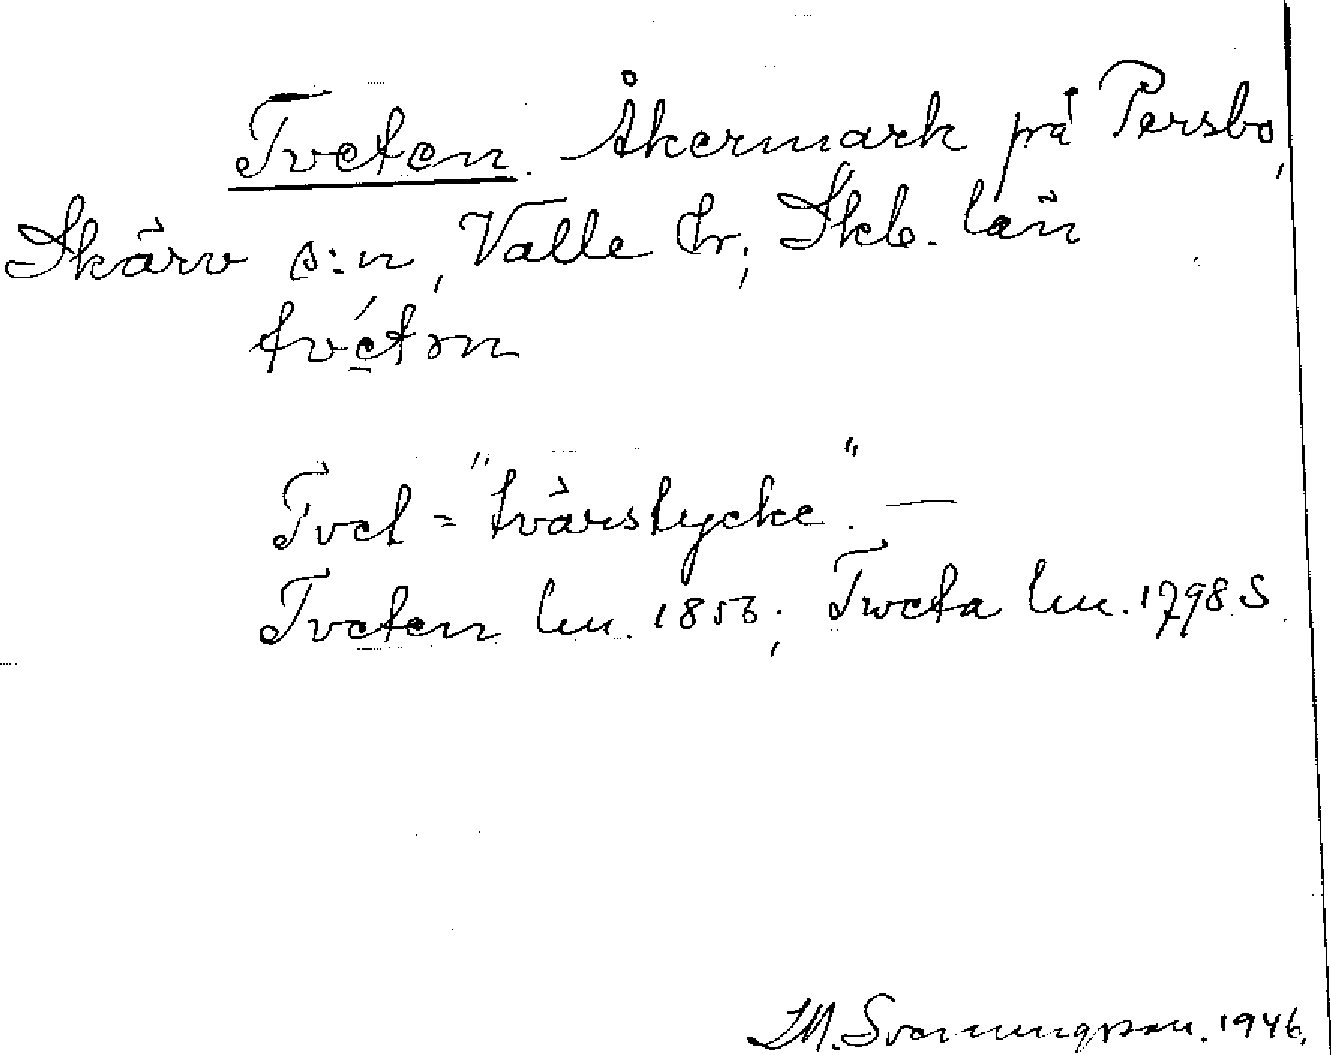 Tveten. Åkermark på Persbo,
Skärv s:n, Valle hr, Skb. län
tvétən
Tvet = "tvärstycke". —
Tveten lm. 1856; Tweta lm. 1798. S
1946.